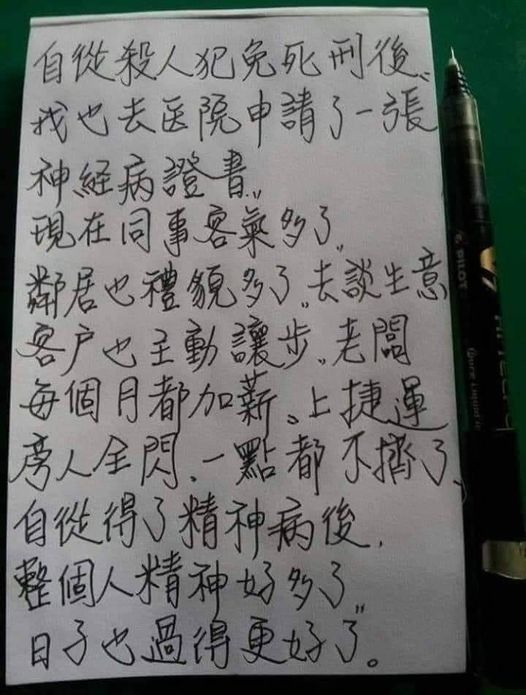 自從殺人犯免死刑後、
我也去医院申請了一張
神経病證書。
現在同事客氣多了。
鄰居也禮貌多了。去談生意
客户也主動讓步。老闆
每個月都加薪。上捷運
旁人全閃、一點都不擠了、
自從得了精神病後,
整個人精神好多了
日子也過得更好了。
PILOT
V7